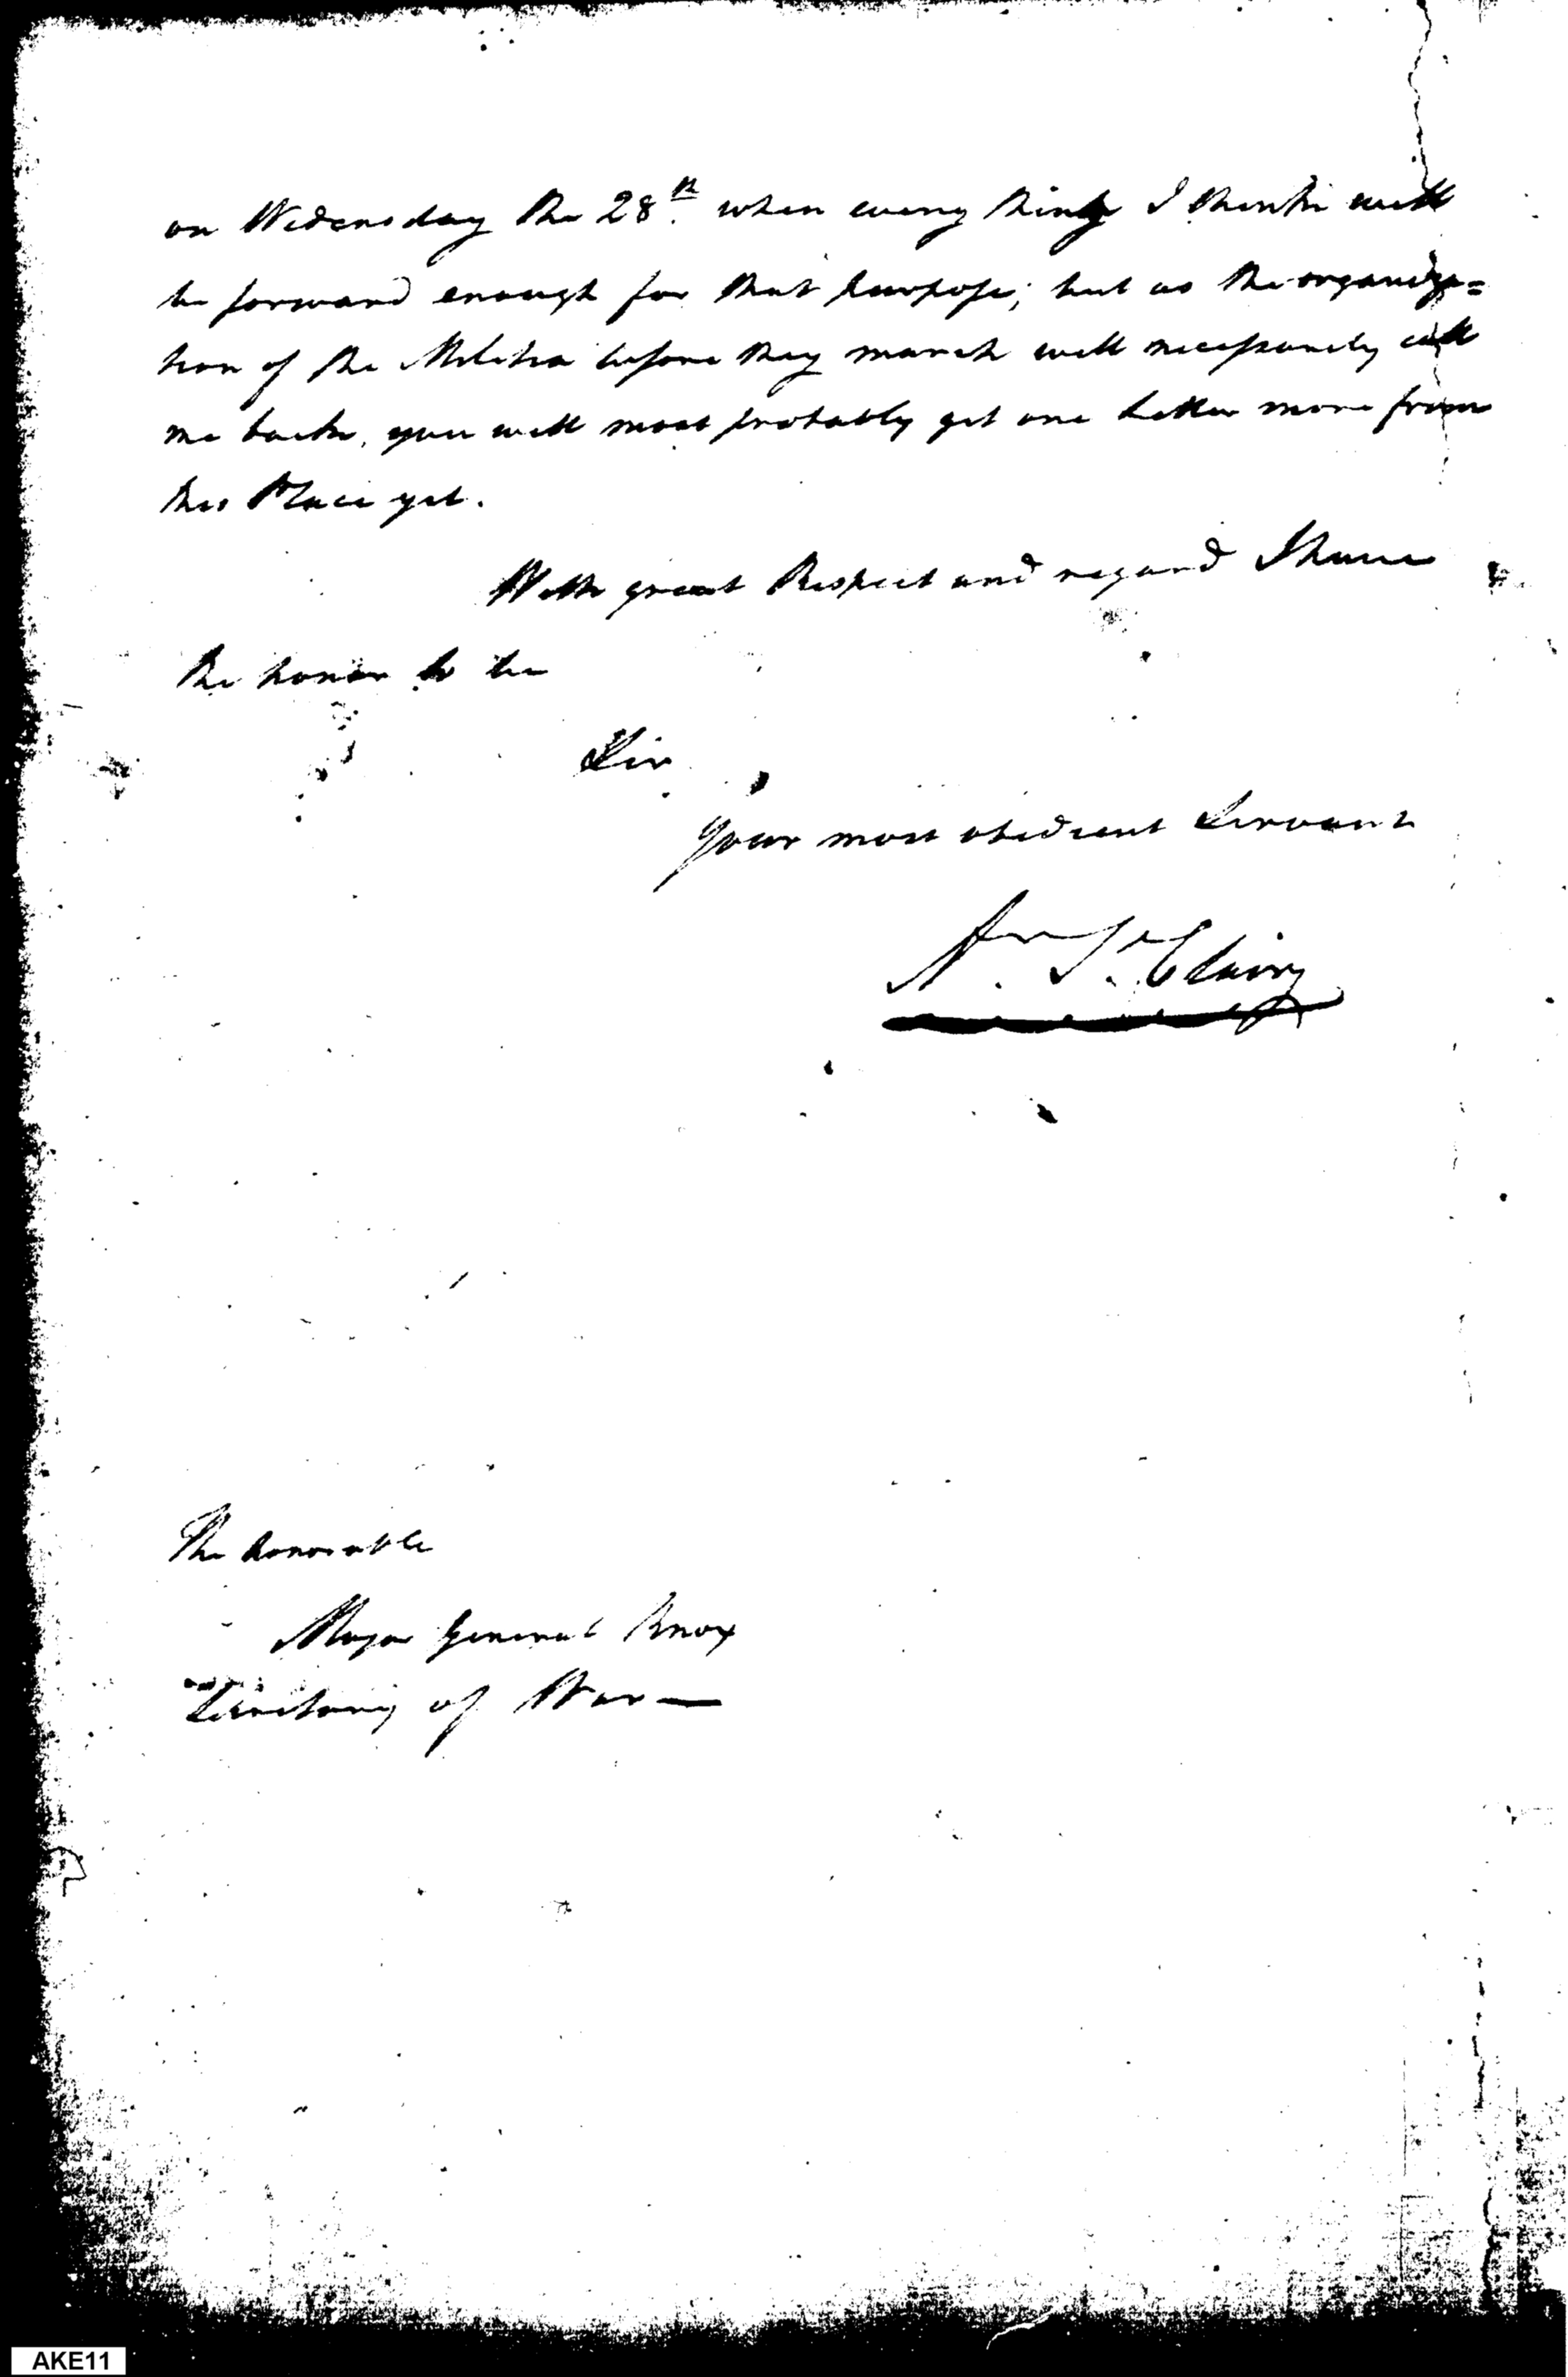 on Wednesday the 28th. when every thing I think will
be forward enough for that purpose; but as the organiza=
tion of the Militia before they march will necessarily call
me back, you will most probably get one Letter more from
this Place yet.
With great Respect and regard I have
the honor to be
Sir
Your most obedient Servant
Ar. St. Clair
The honorable
Major General Knox
Secretary of War —
AKE11